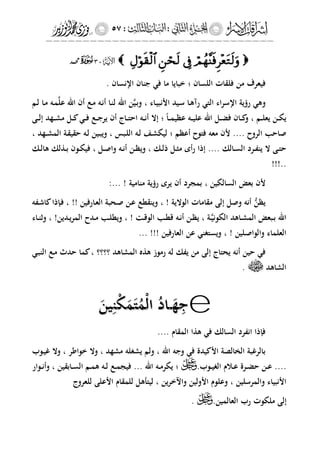 أشرف الإسراء : الجزء الثالث : الباب الثالث : ٥٧
﴿ وَلَتَعْرِفَنَّهُمْ فِي لَحْنِ الْقَوْلِ ﴾ الآية ٣٠
فيعرف من فلقات اللسان ؛ خبايا ما في جنان الإنسان .
وهي رؤية الإسراء التي رآها سيد الأنبياء، وبيَّن الله لنا أنه مع أن الله علَّمه ما لم
يكن يعلم، وكان فضل الله عليه عظيماً ؛ إلا أنه احتاج أن يرجع في كل مشهد إلى
صاحب الروح .... لأن معه فتوح أعظم ؛ ليكشف له اللبس ، ويبين له حقيقة المشهد ،
حتى لا ينفرد السالك .... إذا رأى مثل ذلك ، ويظن أنه واصل ، فيكون بذلك هالك
!!...
لأن بعض السالكين ، بمجرد أن يرى رؤية منامية ! ...:
يظنُّ أنه وصل إلى مقامات الولاية ! ، وينقطع عن صحبة العارفين !! ، فإذا كاشفه
الله ببعض المشاهد الكونيَّة ، يظن أنه قطب الوقت ! ، ويطلب مدح المريدين! ، وثناء
العلماء والواصلين ! ، ويستغني عن العارفين !!! ...
في حين أنه يحتاج إلى من يفك له رموز هذه المشاهد ؟؟؟؟ ، كما حدث مع النبي
الشاهد ﷺ .
جِهَادُ الْمُتَمَكِّنِينَ
فإذا انفرد السالك في هذا المقام ....
بالرغبة الخالصة الأكيدة في وجه الله ، ولم يشغله مشهد ، ولا خواطر ، ولا غيوب
.... عن حضرة علام الغيوب. ؛ يكرمه الله ... فيجمع له همم السابقين ، وأنوار
الأنبياء والمرسلين ، وعلوم الأولين والآخرين ، ليتأهل للمقام الأعلى للعروج
إلى ملكوت رب العالمين. .